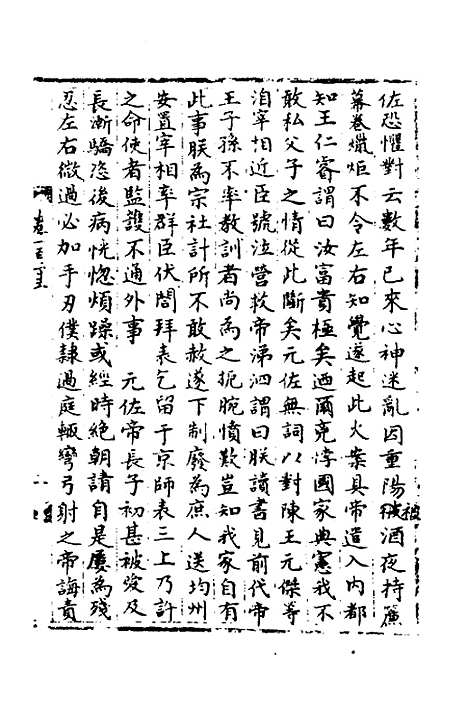 佐恐懼對云數年已來心神迷亂因重陽被酒夜持簾
幕卷爇炬不令左右知覺遂起此火案具帝遣入内都
知王仁睿謂曰汝富貴極矣迺爾兇悖國家典憲我不
敢私父子之情從此斷矣元佐無詞以對陳王元傑等
洎宰相近臣號泣營救帝涕泗謂曰朕讀書見前代帝
王子孫不率教訓者尚為之扼腕憤歎豈知我家自有
此事朕為宗社計所不敢赦遂下制廢為庶人送均州
安置宰相率群臣伏閤拜表乞留于京師表三上乃許
之命使者監護不通外事　元佐帝長子初甚被愛及
長漸驕恣後病恍惚煩躁或經時絕朝請自是屢為殘
忍左右微過必加手刃僕隸過庭輒彎弓射之帝誨責